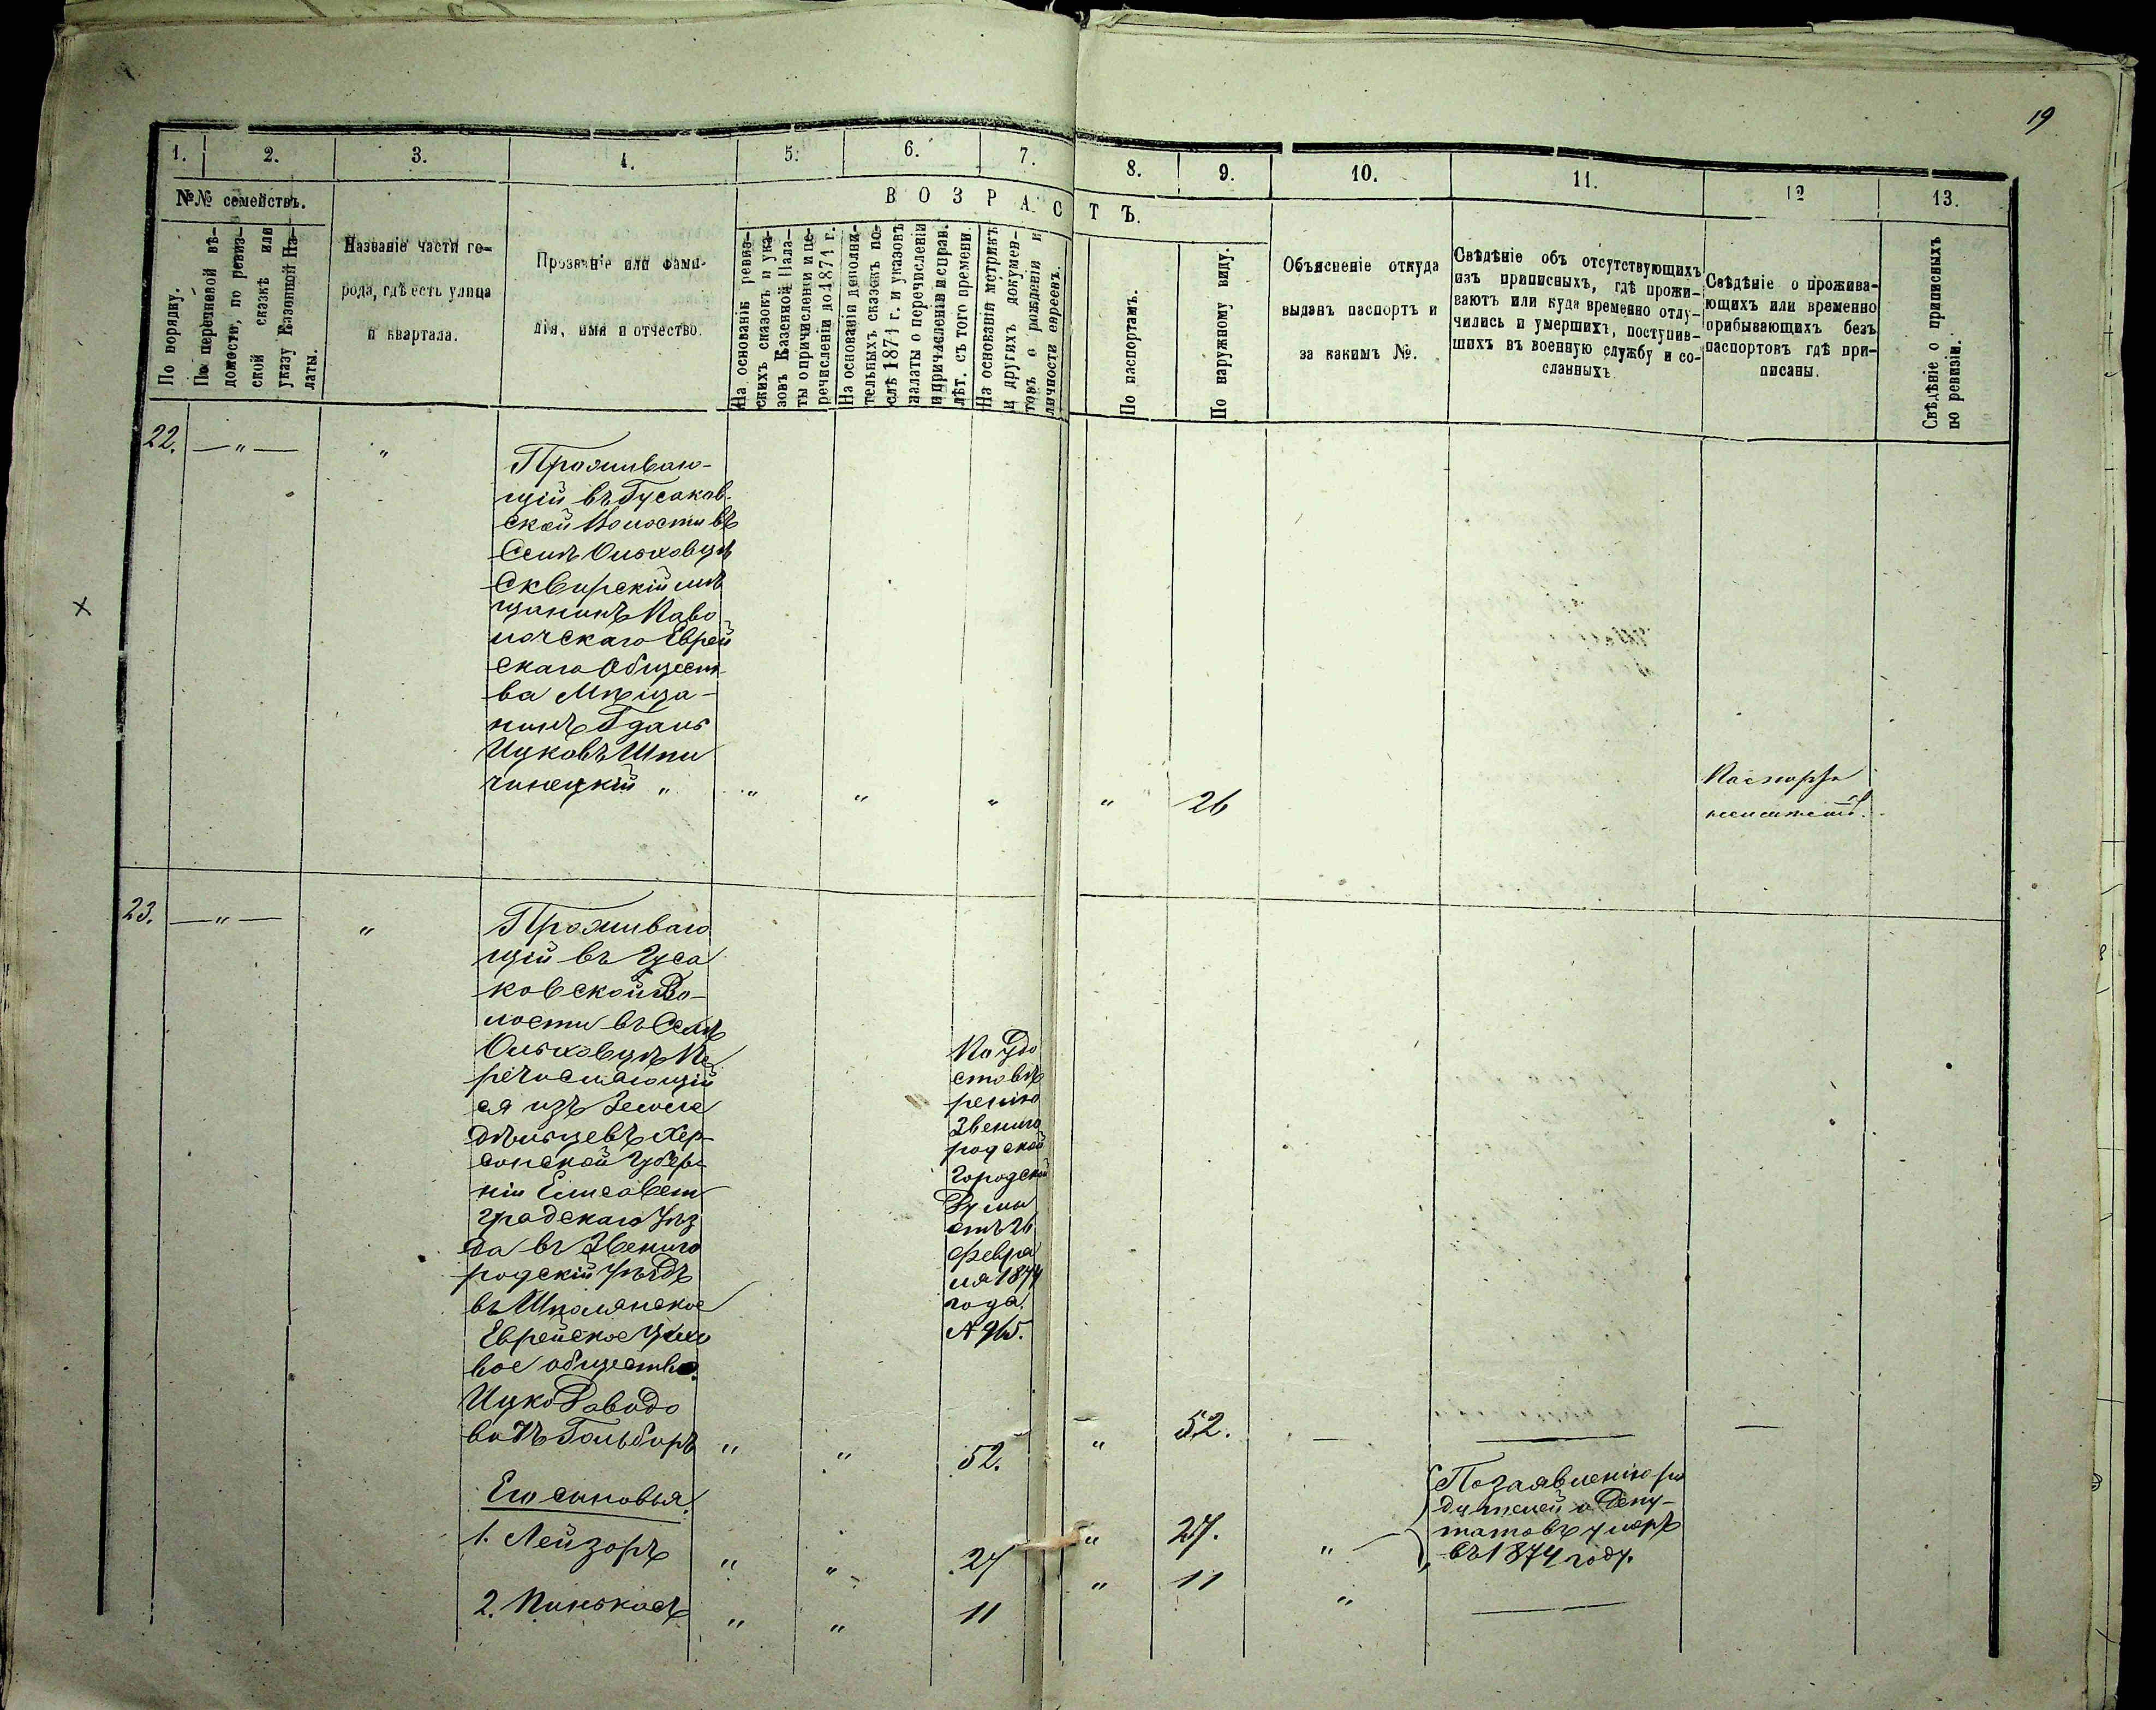 19
1. 2. 3. 4. 5. 6. 7. 8. 9. 10. 11. 12 13.
№№ семействъ.
ВОЗРАСТЪ.
По порядку.
По перечневой вѣ-
домости, по ревиз-
ской сказкѣ или
указу Казенной Па-
латы.
Названіе части го-
рода, гдѣ есть улица
и квартала.
Прозваніе или фами-
лія, имя и отчество.
На основаніѣ ревиз-
скихъ сказокъ и ука-
зовъ Казенной Пала-
ты о причисленіи и пе-
речисленіи до 1871 г.
На основаніи дополни-
тельныхъ сказокъ по-
слѣ 1871 г. и указовъ
палаты о перечисленіи
и причисленіи исправ.
лѣт. съ того времени
На основаніи метрикъ
и другихъ докумен-
товъ о рожденіи и
личности евреевъ.
По паспортамъ.
По наружному виду.
Объясненіе откуда
выданъ паспортъ и
за какимъ №.
Свѣдѣніе объ отсутствующихъ
изъ приписныхъ, гдѣ прожи-
ваютъ или куда временно отлу-
чились и умершихъ, поступив-
шихъ въ военную службу и со-
сланныхъ
Свѣдѣніе о прожива-
ющихъ или временно
прибывающихъ безъ
паспортовъ гдѣ при-
писаны.
Свѣдѣніе о приписныхъ
по ревизіи.
22. — " — "
Проживаю-
щій въ Гусаков-
ской Волости въ
Селѣ Ольховцѣ
Сквирскій мѣ
щанинъ Паво
лочскаго Еврей
скаго Общест-
ва Мѣща-
нинъ Гдаль
Ицковъ Шпи
чинецкій " " " " " 26
Паспорта
неимѣетъ.
23. — " — "
Проживаю
щій въ Гуса
ковской Во-
лости въ Селѣ
Ольховцѣ Пе
речисляющій
ся изъ Земле
дѣльцевъ Хер-
сонской Губер-
ніи Елисавет
градскаго Уѣз
да въ Звениго
родскій Уѣздъ
въ Шполянское
Еврейское
вое общество.
Ицко Давидо
вичъ Гольбортъ " "
По Удо
стовѣ
ренію
Звениго
родской
Городской
Думы
отъ 26
Февра
ля 1874
года.
№ 965.
52. " 52. — —
Его сыновья.
1. Лейзоръ " " 27 " 27. "
По заявленію ро
дителей и Депу-
татовъ умеръ
въ 1874 году.
2. Пинькасъ " " 11 " 11 "